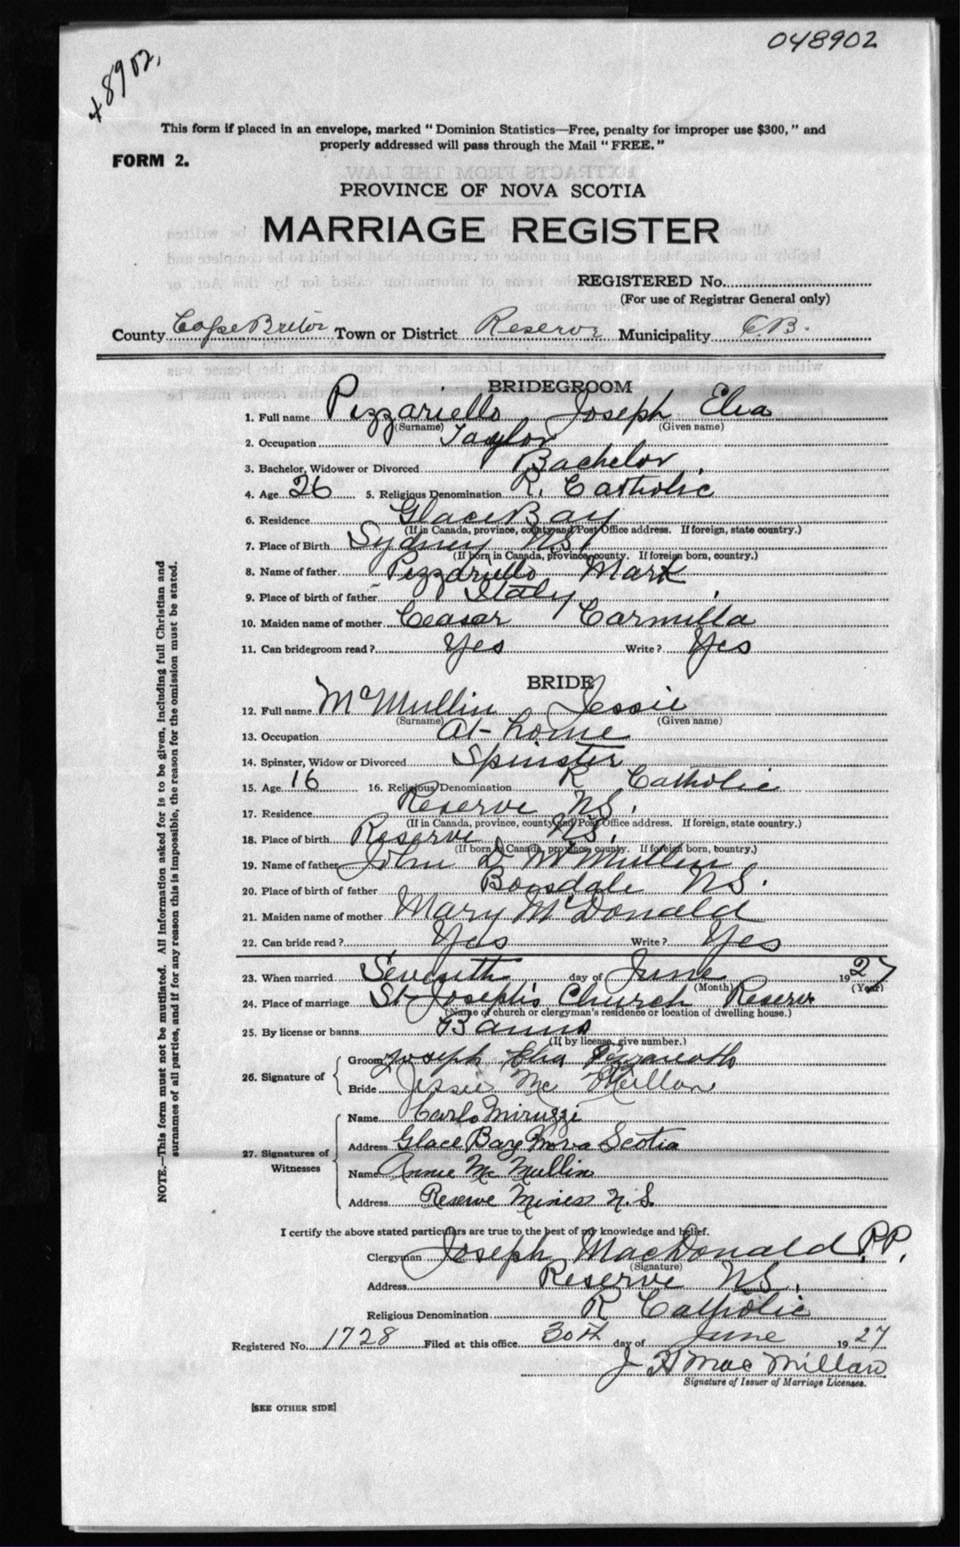 048902
48902,
This form if placed in an envelope, marked "Dominion Statistics—Free, penalty for improper use $300," and
properly addressed will pass through the Mail "FREE."
FORM 2.
PROVINCE OF NOVA SCOTIA
MARRIAGE REGISTER
REGISTERED No.
(For use of Registrar General only)
County Cape Breton Town or District Reserve Municipality C.B.
BRIDEGROOM
1. Full name Pizzariello Joseph Elia
(Surname) (Given name)
2. Occupation Taylor
3. Bachelor, Widower or Divorced Bachelor
4. Age 26 5. Religious Denomination R. Catholic
6. Residence Glace Bay
(If in Canada, province, county and Post Office address. If foreign, state country.)
7. Place of Birth Sydney N.S.
(If born in Canada, province, county. If foreign born, country.)
8. Name of father Pizzariello Mark
9. Place of birth of father Italy
10. Maiden name of mother Ceasar Carmilla
11. Can bridegroom read? Yes Write? Yes
BRIDE
12. Full name McMullin Jessie
(Surname) (Given name)
13. Occupation At-home
14. Spinster, Widow or Divorced Spinster
15. Age 16 16. Religious Denomination R Catholic
17. Residence Reserve N.S.
(If in Canada, province, county and Post Office address. If foreign, state country.)
18. Place of birth Reserve N.S.
(If born in Canada, province, county. If foreign born, country.)
19. Name of father John D McMullin
20. Place of birth of father Boisdale N.S.
21. Maiden name of mother Mary McDonald
22. Can bride read? Yes Write? Yes
23. When married Seventh day of June 1927
(Month) (Year)
24. Place of marriage St Joseph's Church Reserve
(Name of church or clergyman's residence or location of dwelling house.)
25. By license or banns Banns
(If by license, give number.)
26. Signature of
Groom Joseph Elia
Bride Jessie Mc Mullan
27. Signatures of Witnesses
Name Carlo Miruzzi
Address Glace Bay Nova Scotia
Name Annie Mc Mullin
Address Reserve Mines N.S.
I certify the above stated particulars are true to the best of my knowledge and belief.
Clergyman Joseph MacDonald P.P.
(Signature)
Address Reserve N.S.
Religious Denomination R Catholic
Registered No. 1728 Filed at this office 30th day of June 1927
J H MacMillan
Signature of Issuer of Marriage Licenses.
[SEE OTHER SIDE]
NOTE.—This form must not be mutilated. All information asked for is to be given, including full Christian and
surnames of all parties, and if for any reason this is impossible, the reason for the omission must be stated.